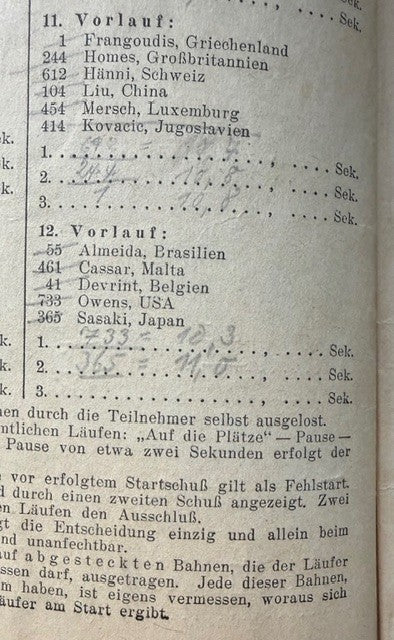 . . . . , . . . . Sek.
11. Vorlauf:
1 Frangoudis, Griechenland
244 Homes, Großbritannien
612 Hänni, Schweiz
104 Liu, China
454 Mersch, Luxemburg
414 Kovacic, Jugoslavien
1. . . . . . . . . . . . . . . . . . , . . . . . Sek.
2. 244 10,8 Sek.
3. 1 10,8 Sek.
12. Vorlauf:
55 Almeida, Brasilien
461 Cassar, Malta
41 Devrint, Belgien
733 Owens, USA
365 Sasaki, Japan
1. 733 = 10,3 Sek.
2. 365 = 11,0 Sek.
3. . . . . . . . . . . . . . . . . . , . . . . . Sek.
en durch die Teilnehmer selbst ausgelost.
entlichen Läufen: „Auf die Plätze“ — Pause —
Pause von etwa zwei Sekunden erfolgt der
vor erfolgtem Startschuß gilt als Fehlstart.
d durch einen zweiten Schuß angezeigt. Zwei
en Läufen den Ausschluß.
gt die Entscheidung einzig und allein beim
nd unanfechtbar.
auf abgesteckten Bahnen, die der Läufer
ssen darf, ausgetragen. Jede dieser Bahnen,
m haben, ist eigens vermessen, woraus sich
äufer am Start ergibt.